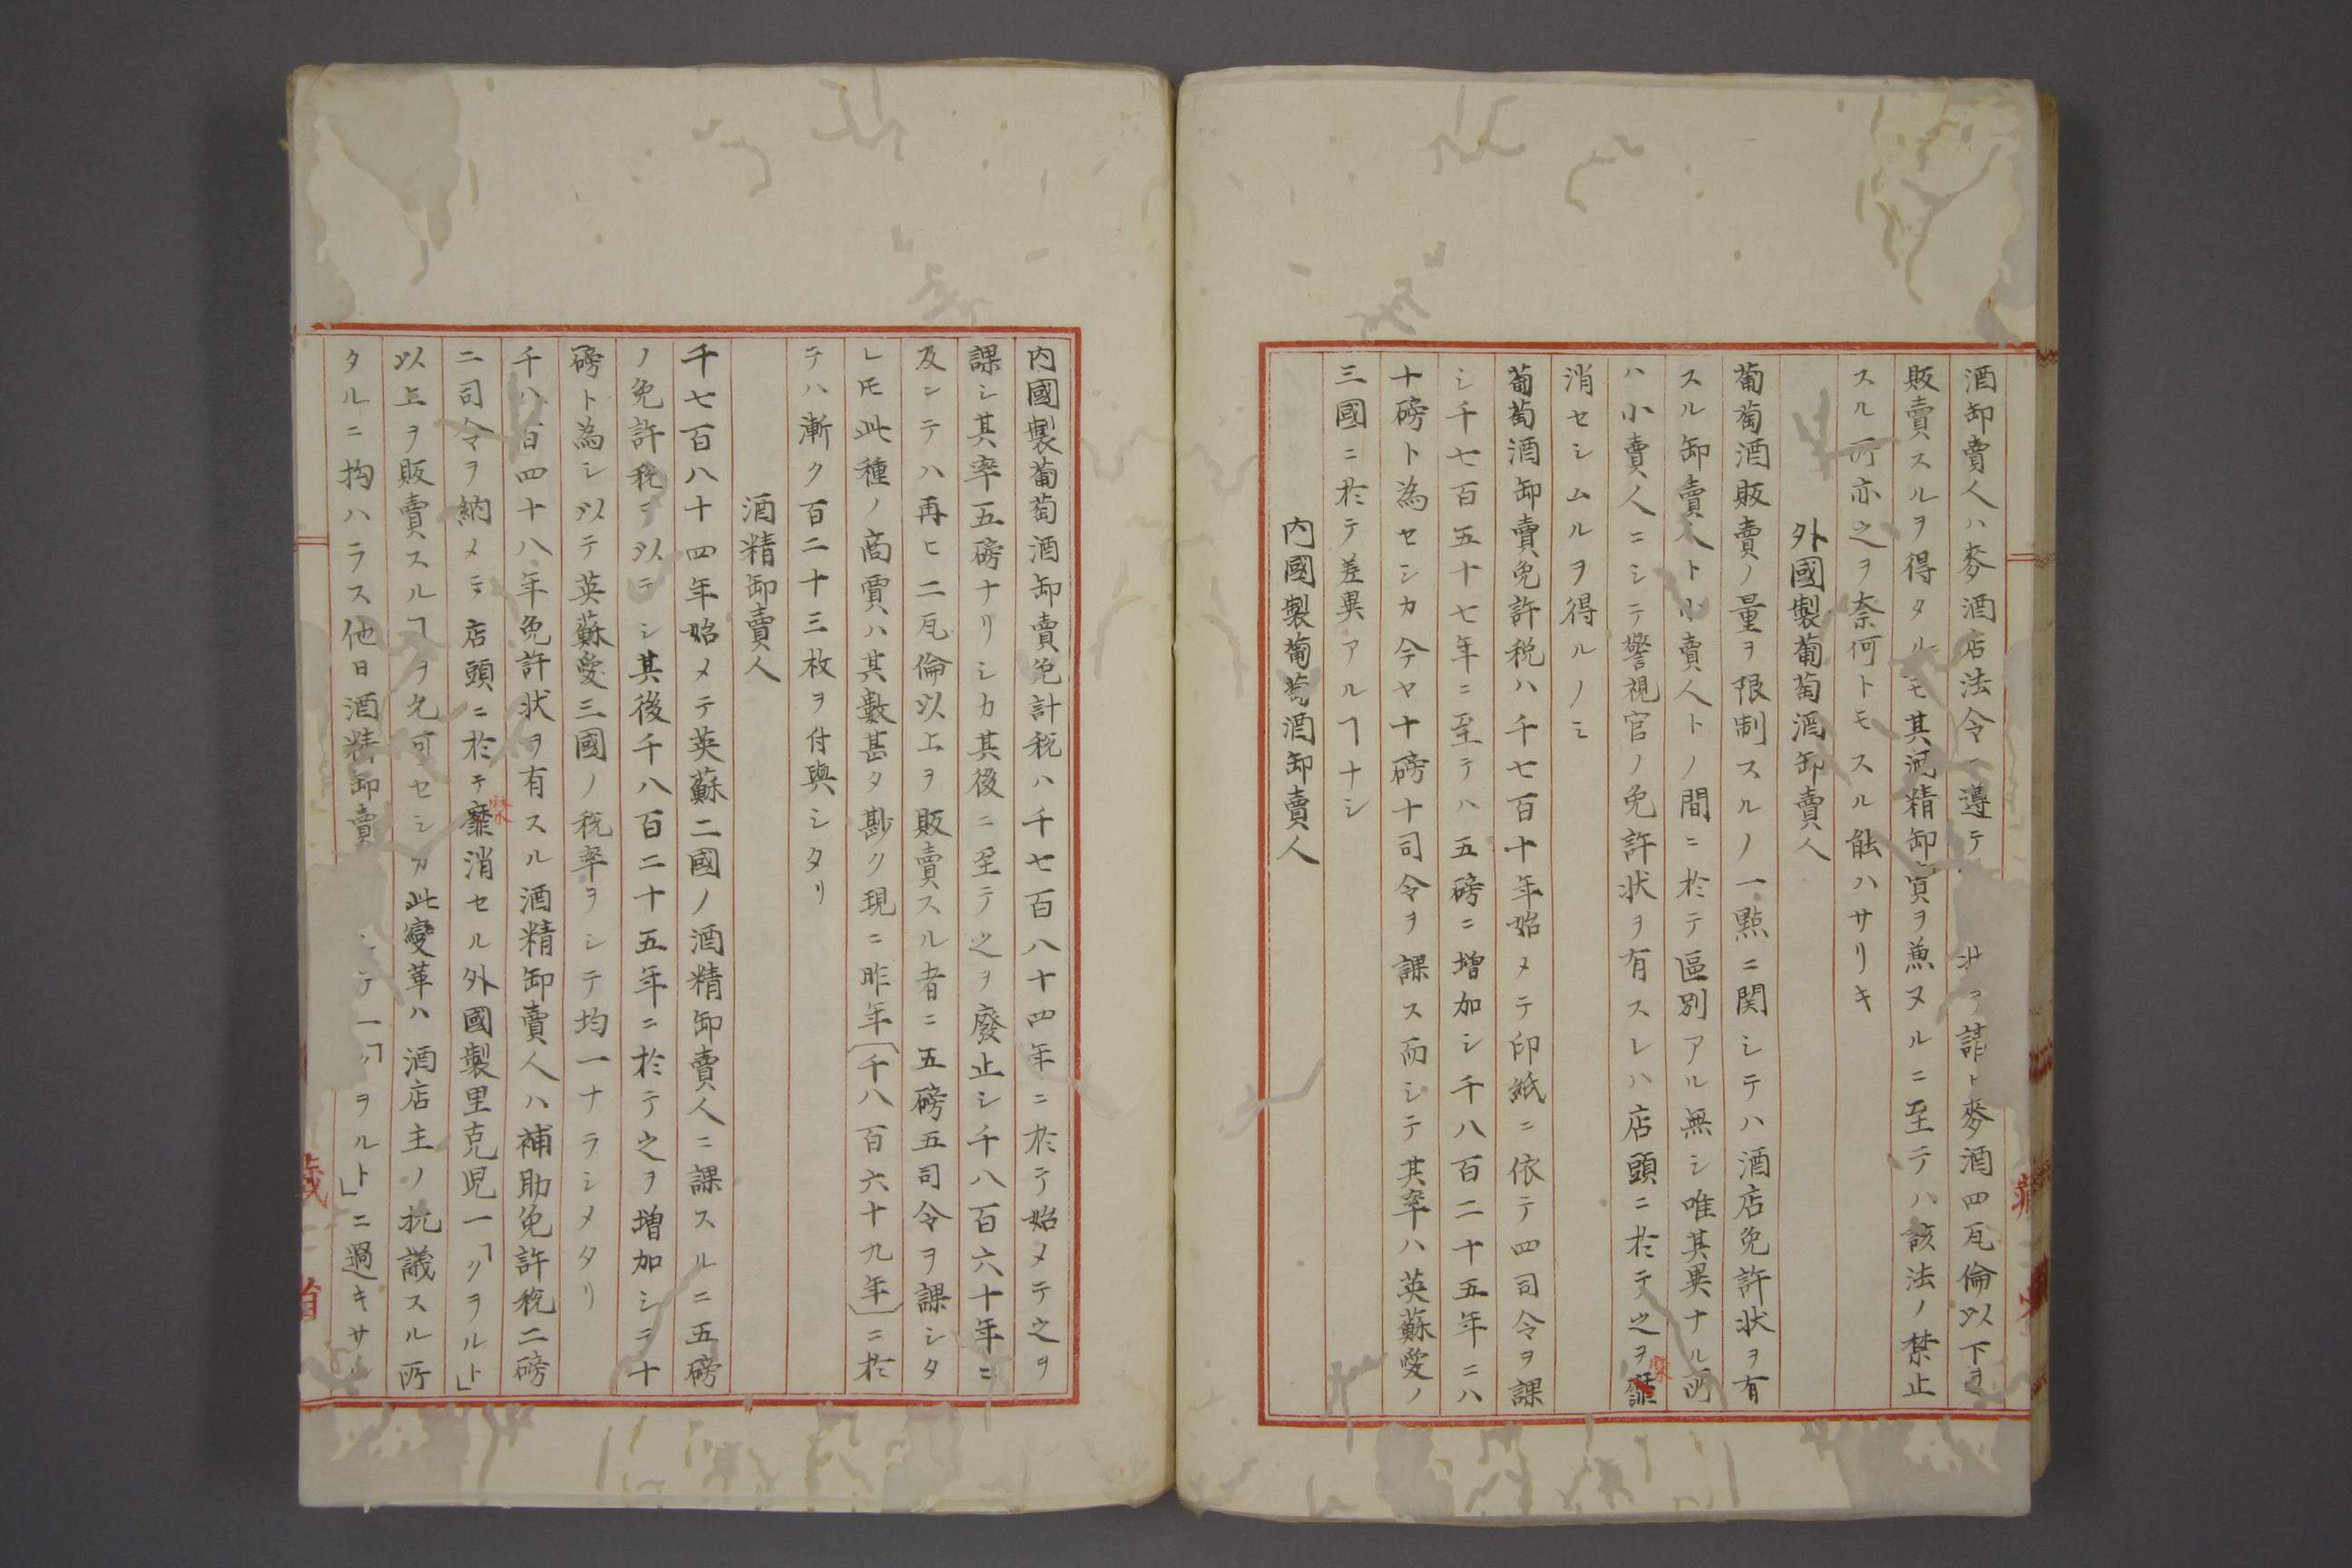 酒卸賣人ハ麥酒店法令ニ遵テ ヲ請ト麥酒四瓦倫以下ヲ
販賣スルヲ得タルモ其酒精卸賣ヲ兼ヌルニ至テハ該法ノ禁止
スル所亦之ヲ奈何トモスル能ハサリキ
外國製葡萄酒卸賣人
葡萄酒販賣ノ量ヲ限制スルノ一點ニ関シテハ酒店免許状ヲ有
スル卸賣人ト小賣人トノ間ニ於テ區別アル無シ唯其異ナル所
ハ小賣人ニシテ警視官ノ免許状ヲ有スレハ店頭ニ於テ之ヲ靡
糜
消セシムルヲ得ルノミ
葡萄酒卸賣免許税ハ千七百十年始メテ印紙ニ依テ四司令ヲ課
シ千七百五十七年ニ至テハ五磅ニ増加シ千八百二十五年ニハ
十磅ト為セシカ今ヤ十磅十司令ヲ課ス而シテ其率ハ英蘇愛ノ
三國ニ於テ差異アルヿナシ
内國製葡萄酒卸賣人
内國製葡萄酒卸賣免計税ハ千七百八十四年ニ於テ始メテ之ヲ
課シ其率五磅ナリシカ其後ニ至テ之ヲ廢止シ千八百六十年ニ
及シテハ再ヒ二瓦倫以上ヲ販賣スル者ニ五磅五司令ヲ課シタ
レ𪜈此種ノ商賈ハ其數甚タ尠ク現ニ昨年〔千八百六十九年〕ニ於
テハ漸ク百二十三枚ヲ付與シタリ
酒精卸賣人
千七百八十四年始メテ英蘇二國ノ酒精卸賣人ニ課スルニ五磅
ノ免許税ヲ以テシ其後千八百二十五年ニ於テ之ヲ増加シ二十
磅ト為シ以テ英蘇愛三國ノ税率ヲシテ均一ナラシメタリ
千八百四十八年免許状ヲ有スル酒精卸賣人ハ補助免許税二磅
二司令ヲ納メテ店頭ニ於テ靡消セル外國製里克児一「クヲルト」
糜
以上ヲ販賣スルヿヲ允可セシカ此變革ハ酒店主ノ抗議スル所
タルニ拘ハラス他日酒精卸賣 シテ一「クヲルト」ニ過キサル